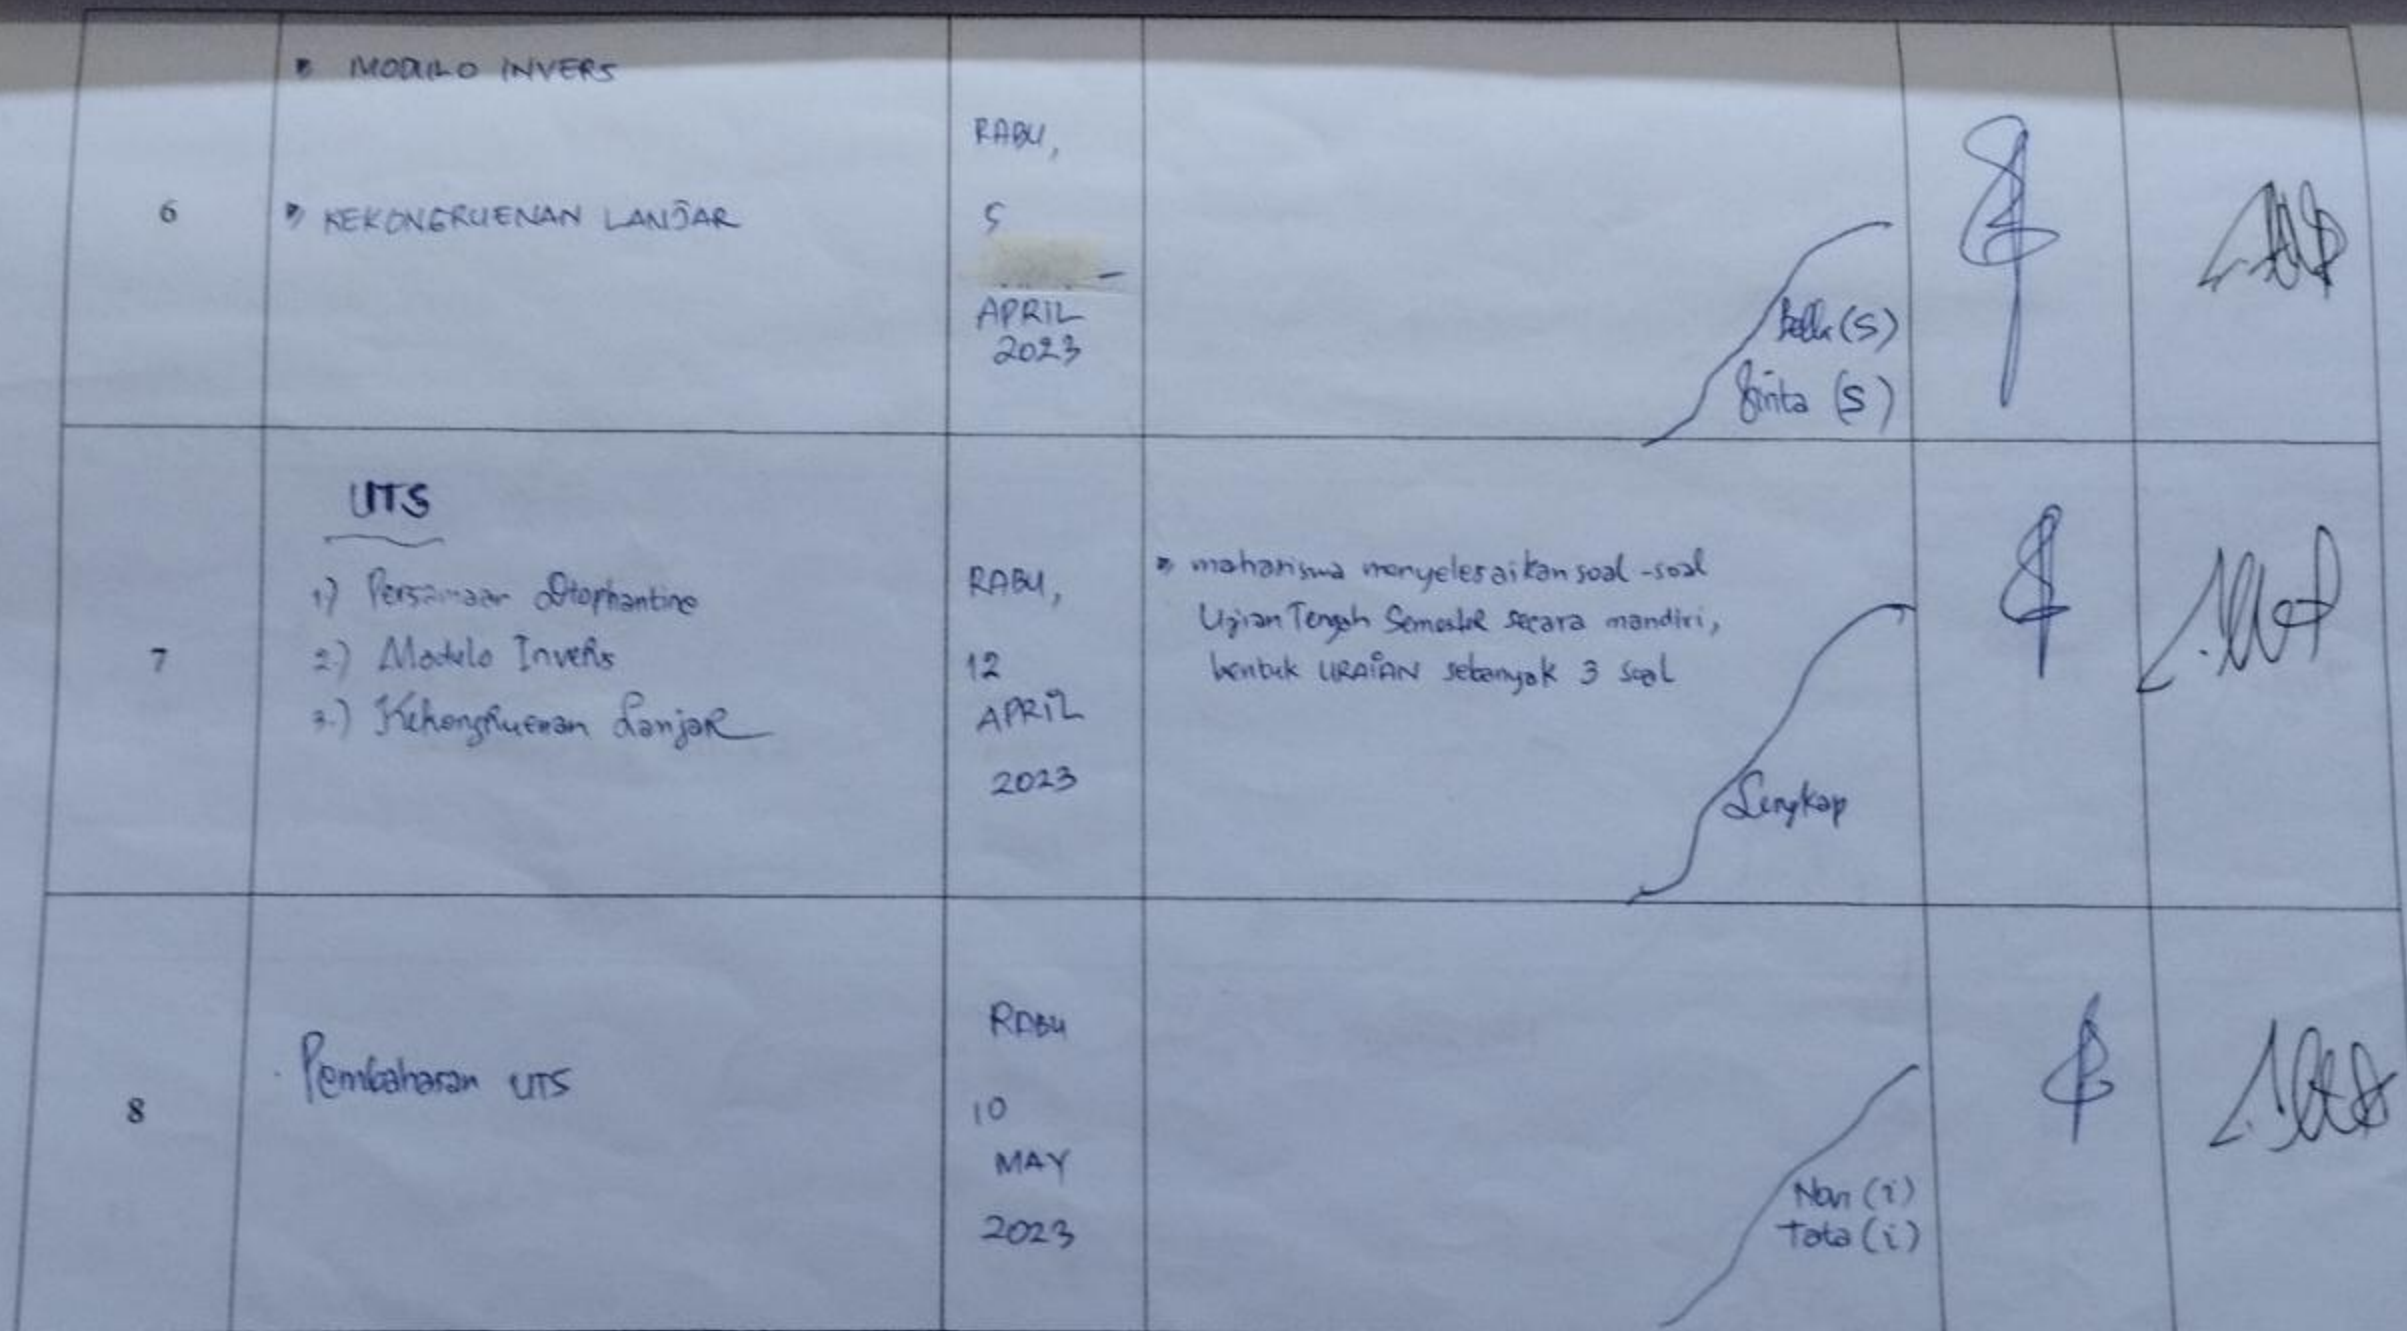 MODULO INVERS
6
KEKONGRUENAN LANJAR
RABU,
5
APRIL
2023
Bella (S)
Sinta (S)
7
UTS
1) Persamaan Diophantine
2) Modulo Invers
3.) Kekongruenan Lanjar
RABU,
12
APRIL
2023
mahasiswa menyelesaikan soal-soal
Ujian Tengah Semester secara mandiri,
bentuk URAIAN sebanyak 3 soal
Lengkap
8
Pembahasan UTS
RABU
10
MAY
2023
(i)
Tata (i)